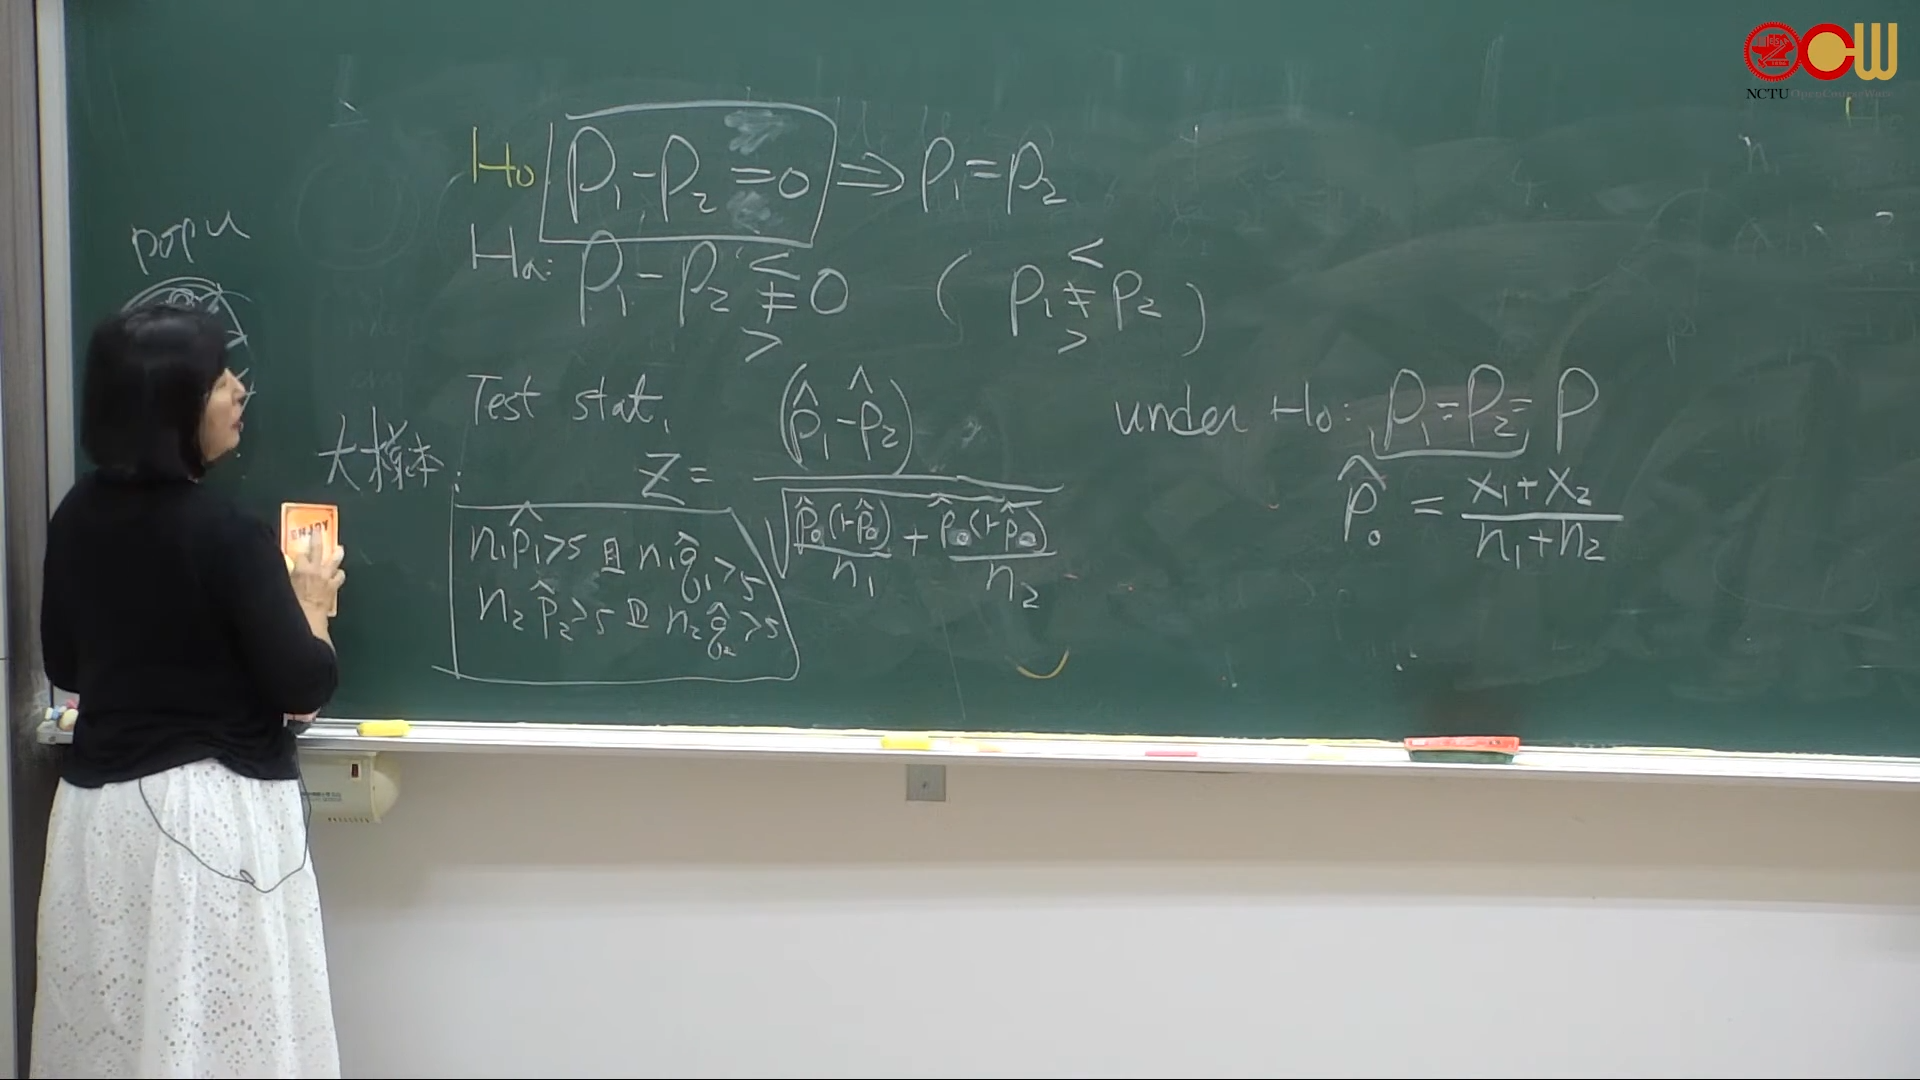 NCTU OpenCourseWare
H₀ P₁-P₂=0 ⇒ P₁=P₂
Ha: P₁-P₂ < ≠ > 0 ( P₁ < ≠ > P₂ )
popu
Test stat.
大樣本:
Z = (p̂₁-p̂₂) / √( p̂₀(1-p̂₀)/n₁ + p̂₀(1-p̂₀)/n₂ )
n₁p̂₁>5 且 n₁q̂₁>5
n₂p̂₂>5 且 n₂q̂₂>5
under H₀: P₁=P₂=P
p̂₀ = (x₁+x₂)/(n₁+n₂)